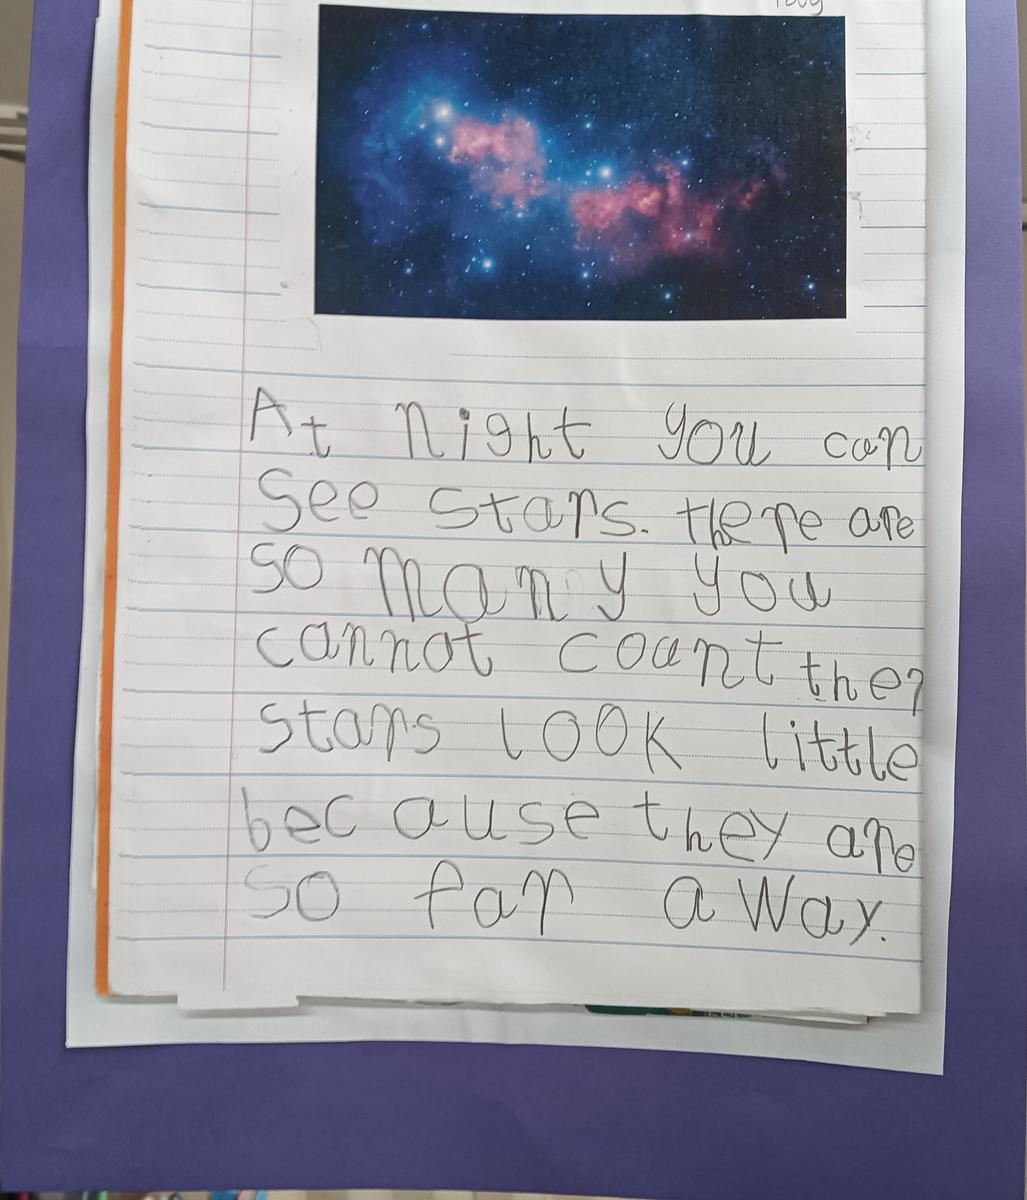 At night you can
see stars. there are
so many you
cannot count the
stars look little
because they are
so far a way.